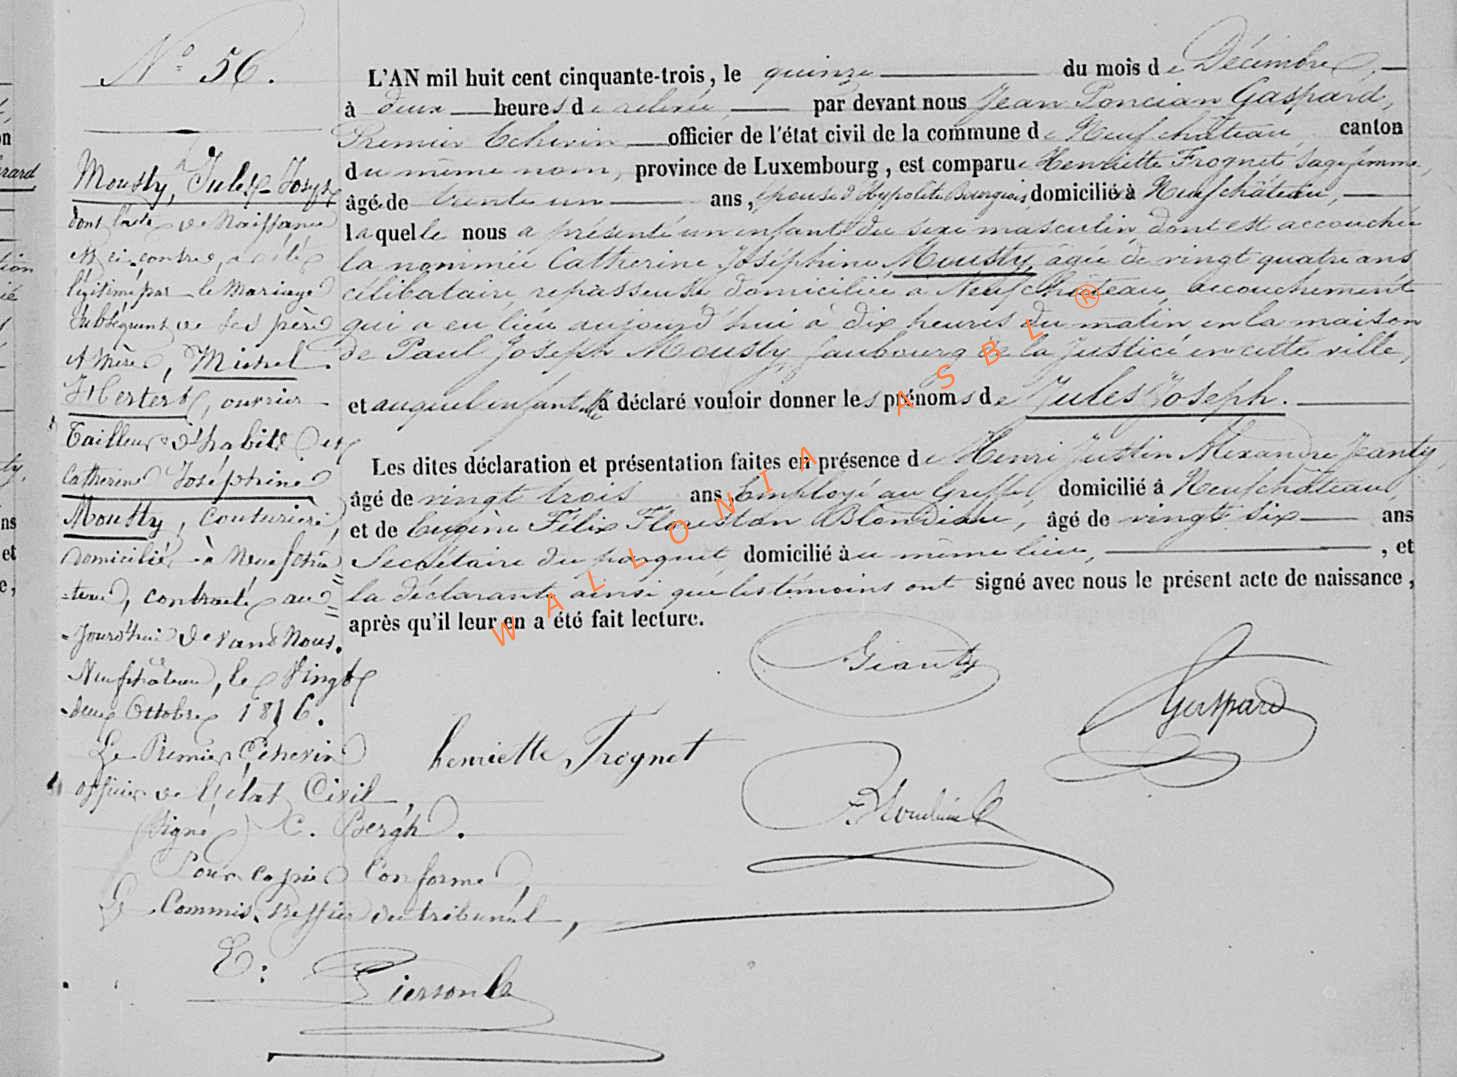 N° 56.
Mousty, Jules Joseph
dont l'acte de Naissance
est ci contre, a été
légitimé par le mariage
subséquent de ses père
et mère, Michel
Herter, ouvrier
Tailleur d'habits et
Catherine Joséphine
Mousty, couturière,
domiciliés à Neufchâ-
-teau, contracté au-
-jourd'hui devant Nous.
Neufchâteau, le Vingt
-deux Octobre 1856.
Le Premier Echevin
officier de l'état Civil,
(Signé) C. Bergh.
Pour copie Conforme,
Le Commis Greffier du tribunal,
E: Pierson
L'AN mil huit cent cinquante-trois, le quinze du mois de Décembre,
à deux heures de relevée, par devant nous Jean Poncian Gaspard,
Premier Echevin officier de l'état civil de la commune de Neufchâteau, canton
du même nom, province de Luxembourg, est comparue Henriette Frognet, sage femme,
âgée de trente un ans, épouse d'Hypolite Bourgeois, domiciliée à Neufchâteau,
laquelle nous a présenté un enfant du sexe masculin, dont est accouchée
la nommée Catherine Joséphine Mousty, âgée de vingt quatre ans
célibataire, repasseuse domiciliée à Neufchâteau, accouchement
qui a eu lieu aujourd'hui à dix heures du matin en la maison
de Paul Joseph Mousty, faubourg de la Justice en cette ville,
et auquel enfant elle a déclaré vouloir donner les prénoms de Jules Joseph.
Les dites déclaration et présentation faites en présence de Henri Justin Alexandre Jeanty,
âgé de vingt trois ans, Employé au Greffe, domicilié à Neufchâteau,
et de Eugène Félix Florestan Blondiau, âgé de vingt six ans
Secrétaire du parquet domicilié au même lieu, , et
la déclarante ainsi que les témoins ont signé avec nous le présent acte de naissance,
après qu'il leur en a été fait lecture.
Jeanty
Gaspard
henriette Frognet
WALLONIA ASBL ®